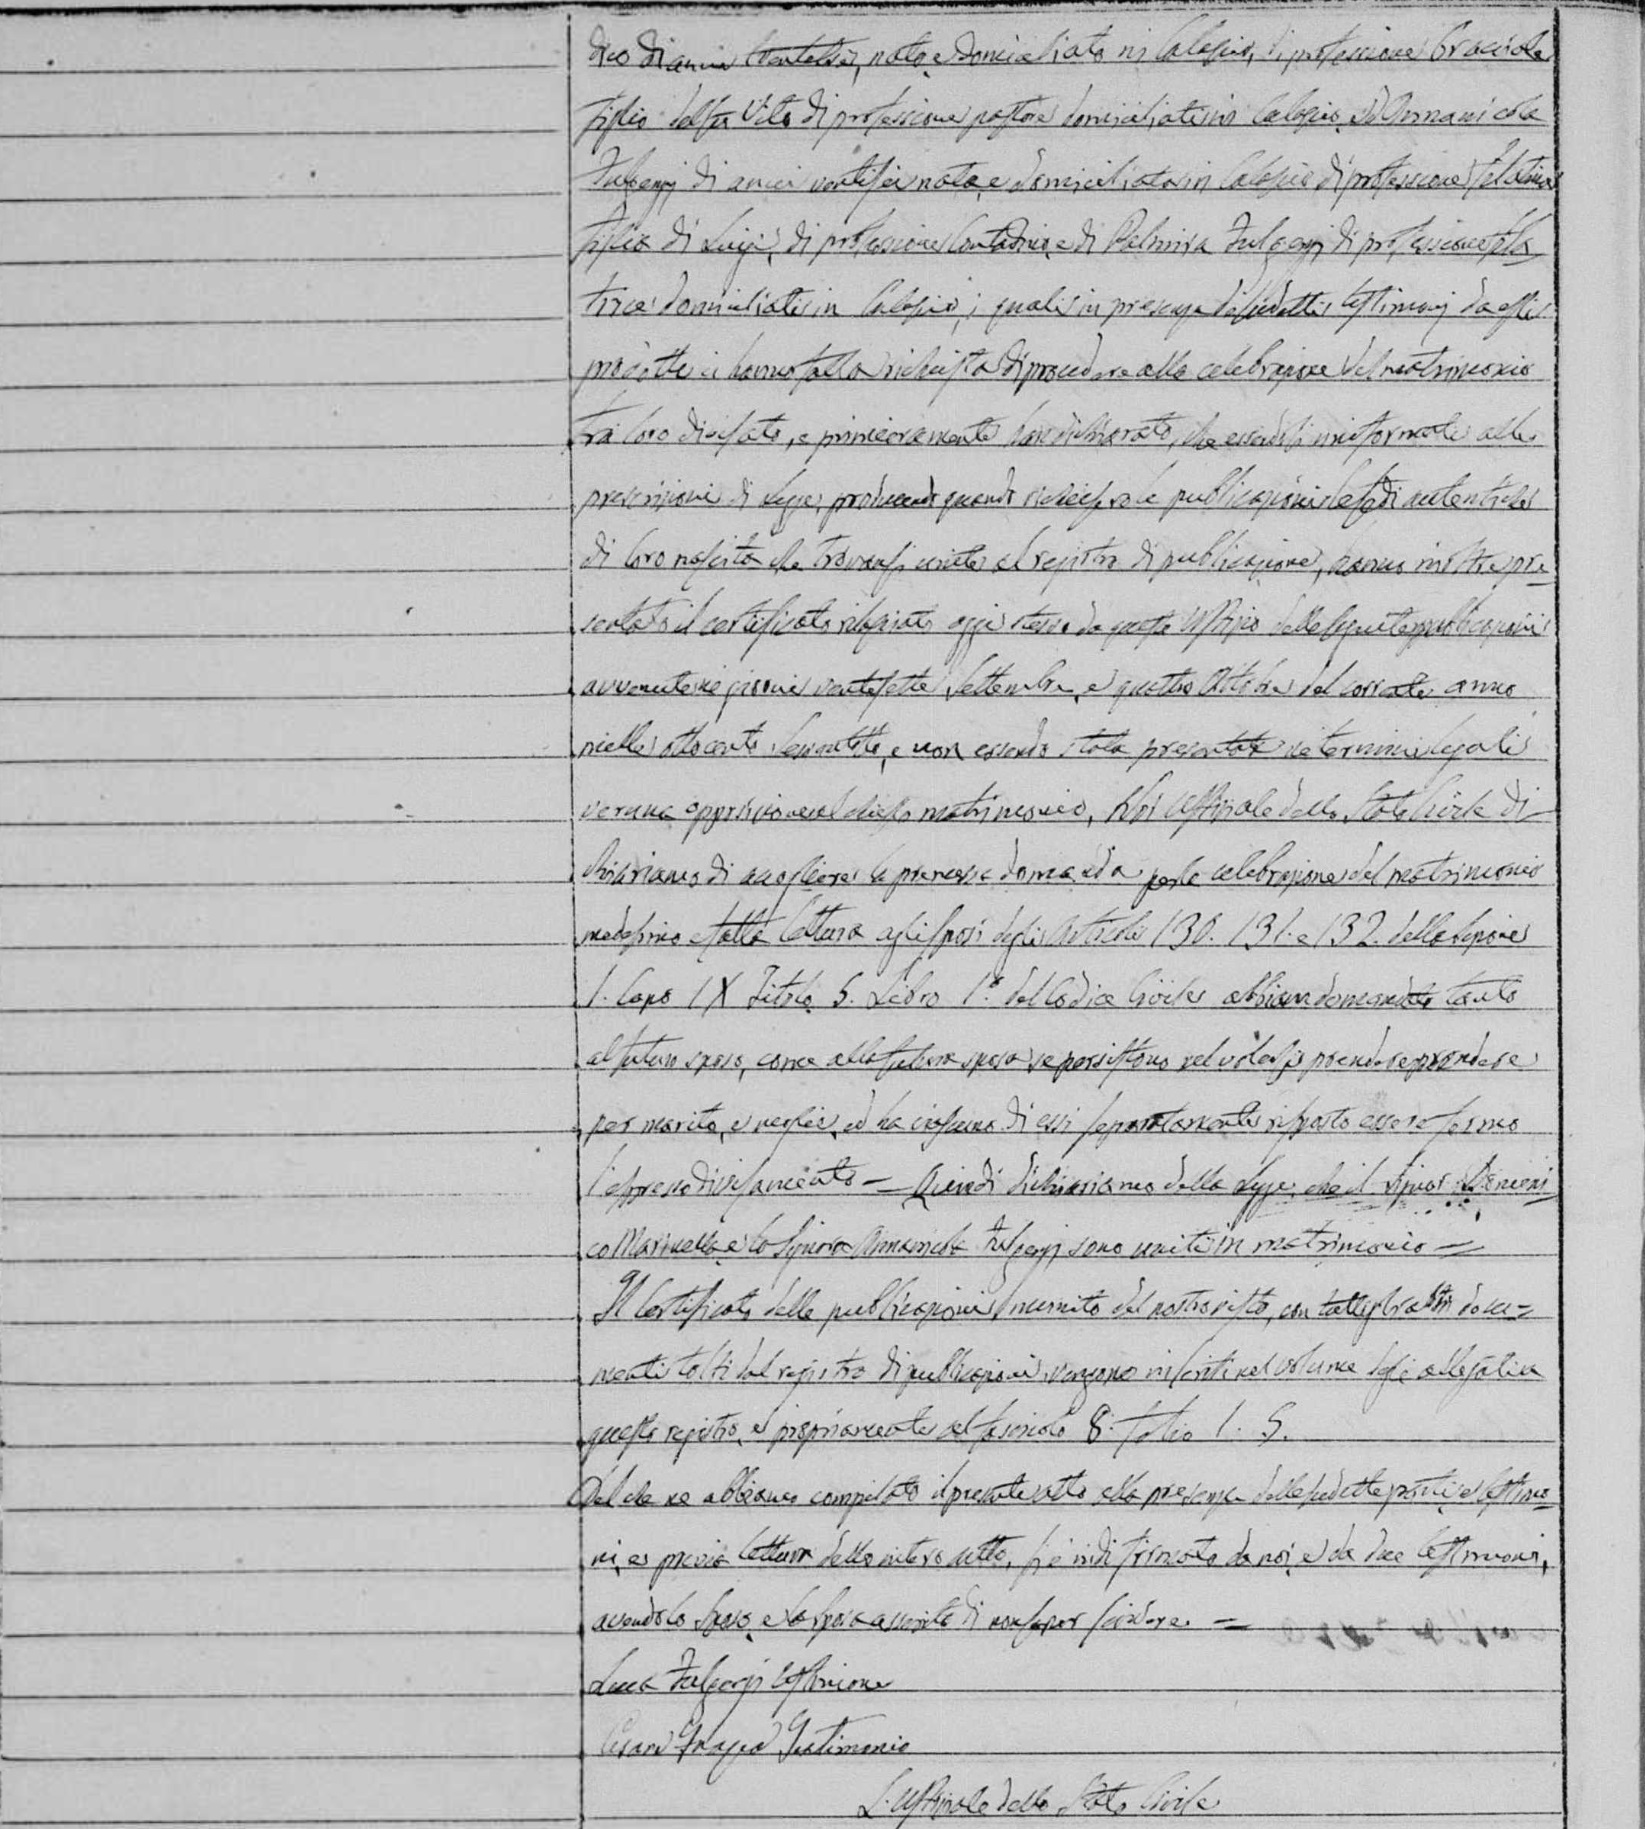 dico di anni ventotto, nato e domiciliato in Calascio, di professione bracciale
figlio del fu Vito di professione pastore domiciliati in Calascio, ed Annanicola
Fulgenzj di anni ventisei nata, e domiciliata in Calascio di professione filatrice
figlia di Luigi, di professione Contadino, e di Palmira Fulgenzj di professione fila
trice domiciliati in Calascio, i quali in presenza de sudetti testimonj da essi
prodotti ci hanno fatta richiesta di procedere alla celebrazione del matrimonio
tra loro divisato, e primieramente han dichiarato, che essendosi uniformati alle
prescrizioni di Legge, producendo quando richiesero le pubblicazioni le fedi autentiche
di loro nascita che trovansi unite al registro di pubblicazione, hanno inoltre pre=
sentato il certificato rilasciato oggi stesso da questo Uffizio delle seguite pubblicazioni
avvenute ne' giorni ventisette Settembre, e quattro Ottobre del corrente anno
mille ottocento sessantotto, e non essendo stata presentata ne' termini legali
veruna opposizione al detto matrimonio, Noi Uffiziale dello Stato Civile di=
chiariamo di accogliere la premessa domanda per la celebrazione del matrimonio
medesimo e fatta lettura agli sposi degli Articoli 130. 131. e 132. della sezione
1. Capo IX Titolo 5. Libro 1.° del Codice Civile abbiam domandato tanto
al futuro sposo, come alla futura sposa se persistono nel volersi prendere
per marito, e moglie, ed ha ciascuno di essi separatamente risposto essere fermo
l'espresso divisamento = Quindi dichiariamo della Legge, che il Signor Domeni
co Marinella e la Signora Annanicola Fulgenzj sono uniti in matrimonio =
Il Certificato delle pubblicazioni, munito del nostro visto, con tutti gli altri docu=
menti tolti dal registro di pubblicazioni, vengono inseriti nel volume degli allegati a
questo registro, e propriamente al fascicolo 8. foglio 1. 5.
Del che ne abbiamo compilato il presente atto alla presenza delle sudette parti e testimo=
ni, e previa lettura dello intero atto, si è indi firmato da noi e da due testimoni,
avendo lo Sposo, e la Sposa asserito di non saper scrivere. =
Luca Fulgenzj testimone
Cesare Testimonio
L'Uffiziale dello Stato Civile